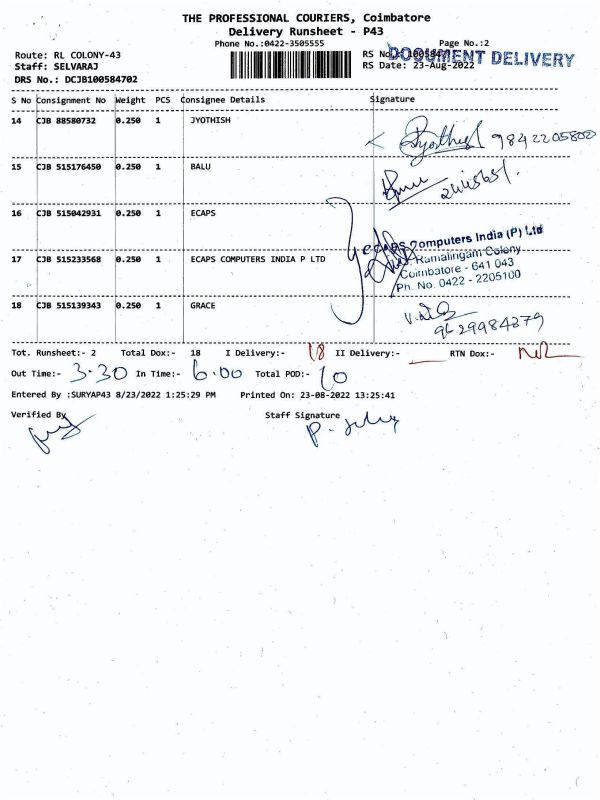 THE PROFESSIONAL COURIERS, Coimbatore
Delivery Runsheet - P43
Phone No.:0422-3505555 Page No.:2
Route: RL COLONY-43 RS No.: DOCUMENT DELIVERY
Staff: SELVARAJ RS Date: 23-Aug-2022
DRS No.: DCJB100584702
S No Consignment No Weight PCS Consignee Details Signature
14 CJB 88580732 0.250 1 JYOTHISH Jyothish 9842205802
15 CJB 515176450 0.250 1 BALU
16 CJB 515042931 0.250 1 ECAPS
Computers India (P) Ltd
17 CJB 515233568 0.250 1 ECAPS COMPUTERS INDIA P LTD Ramalingam Colony
Coimbatore - 641 043
Ph. No. 0422 - 2205100
18 CJB 515139343 0.250 1 GRACE
9629984279
Tot. Runsheet:- 2 Total Dox:- 18 I Delivery:- 18 II Delivery:- RTN Dox:- Nil
Out Time:- 3.30 In Time:- 6.00 Total POD:- 10
Entered By :SURYAP43 8/23/2022 1:25:29 PM Printed On: 23-08-2022 13:25:41
Verified By Staff Signature